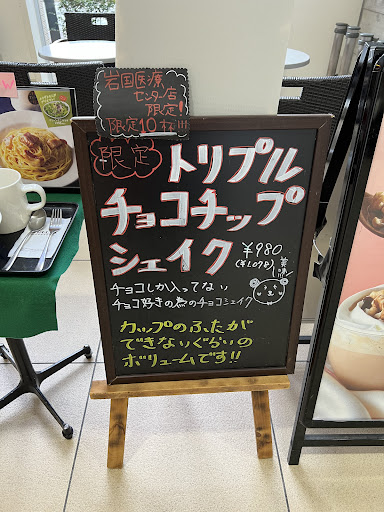 岩国医療
センター店
限定!
限定10杯!!!
限定
トリプル
チョコチップ
シェイク
¥980
(¥1,078)
チョコしか入ってない
チョコ好きの為のチョコシェイク
カップのふたが
できないぐらいの
ボリュームです!!